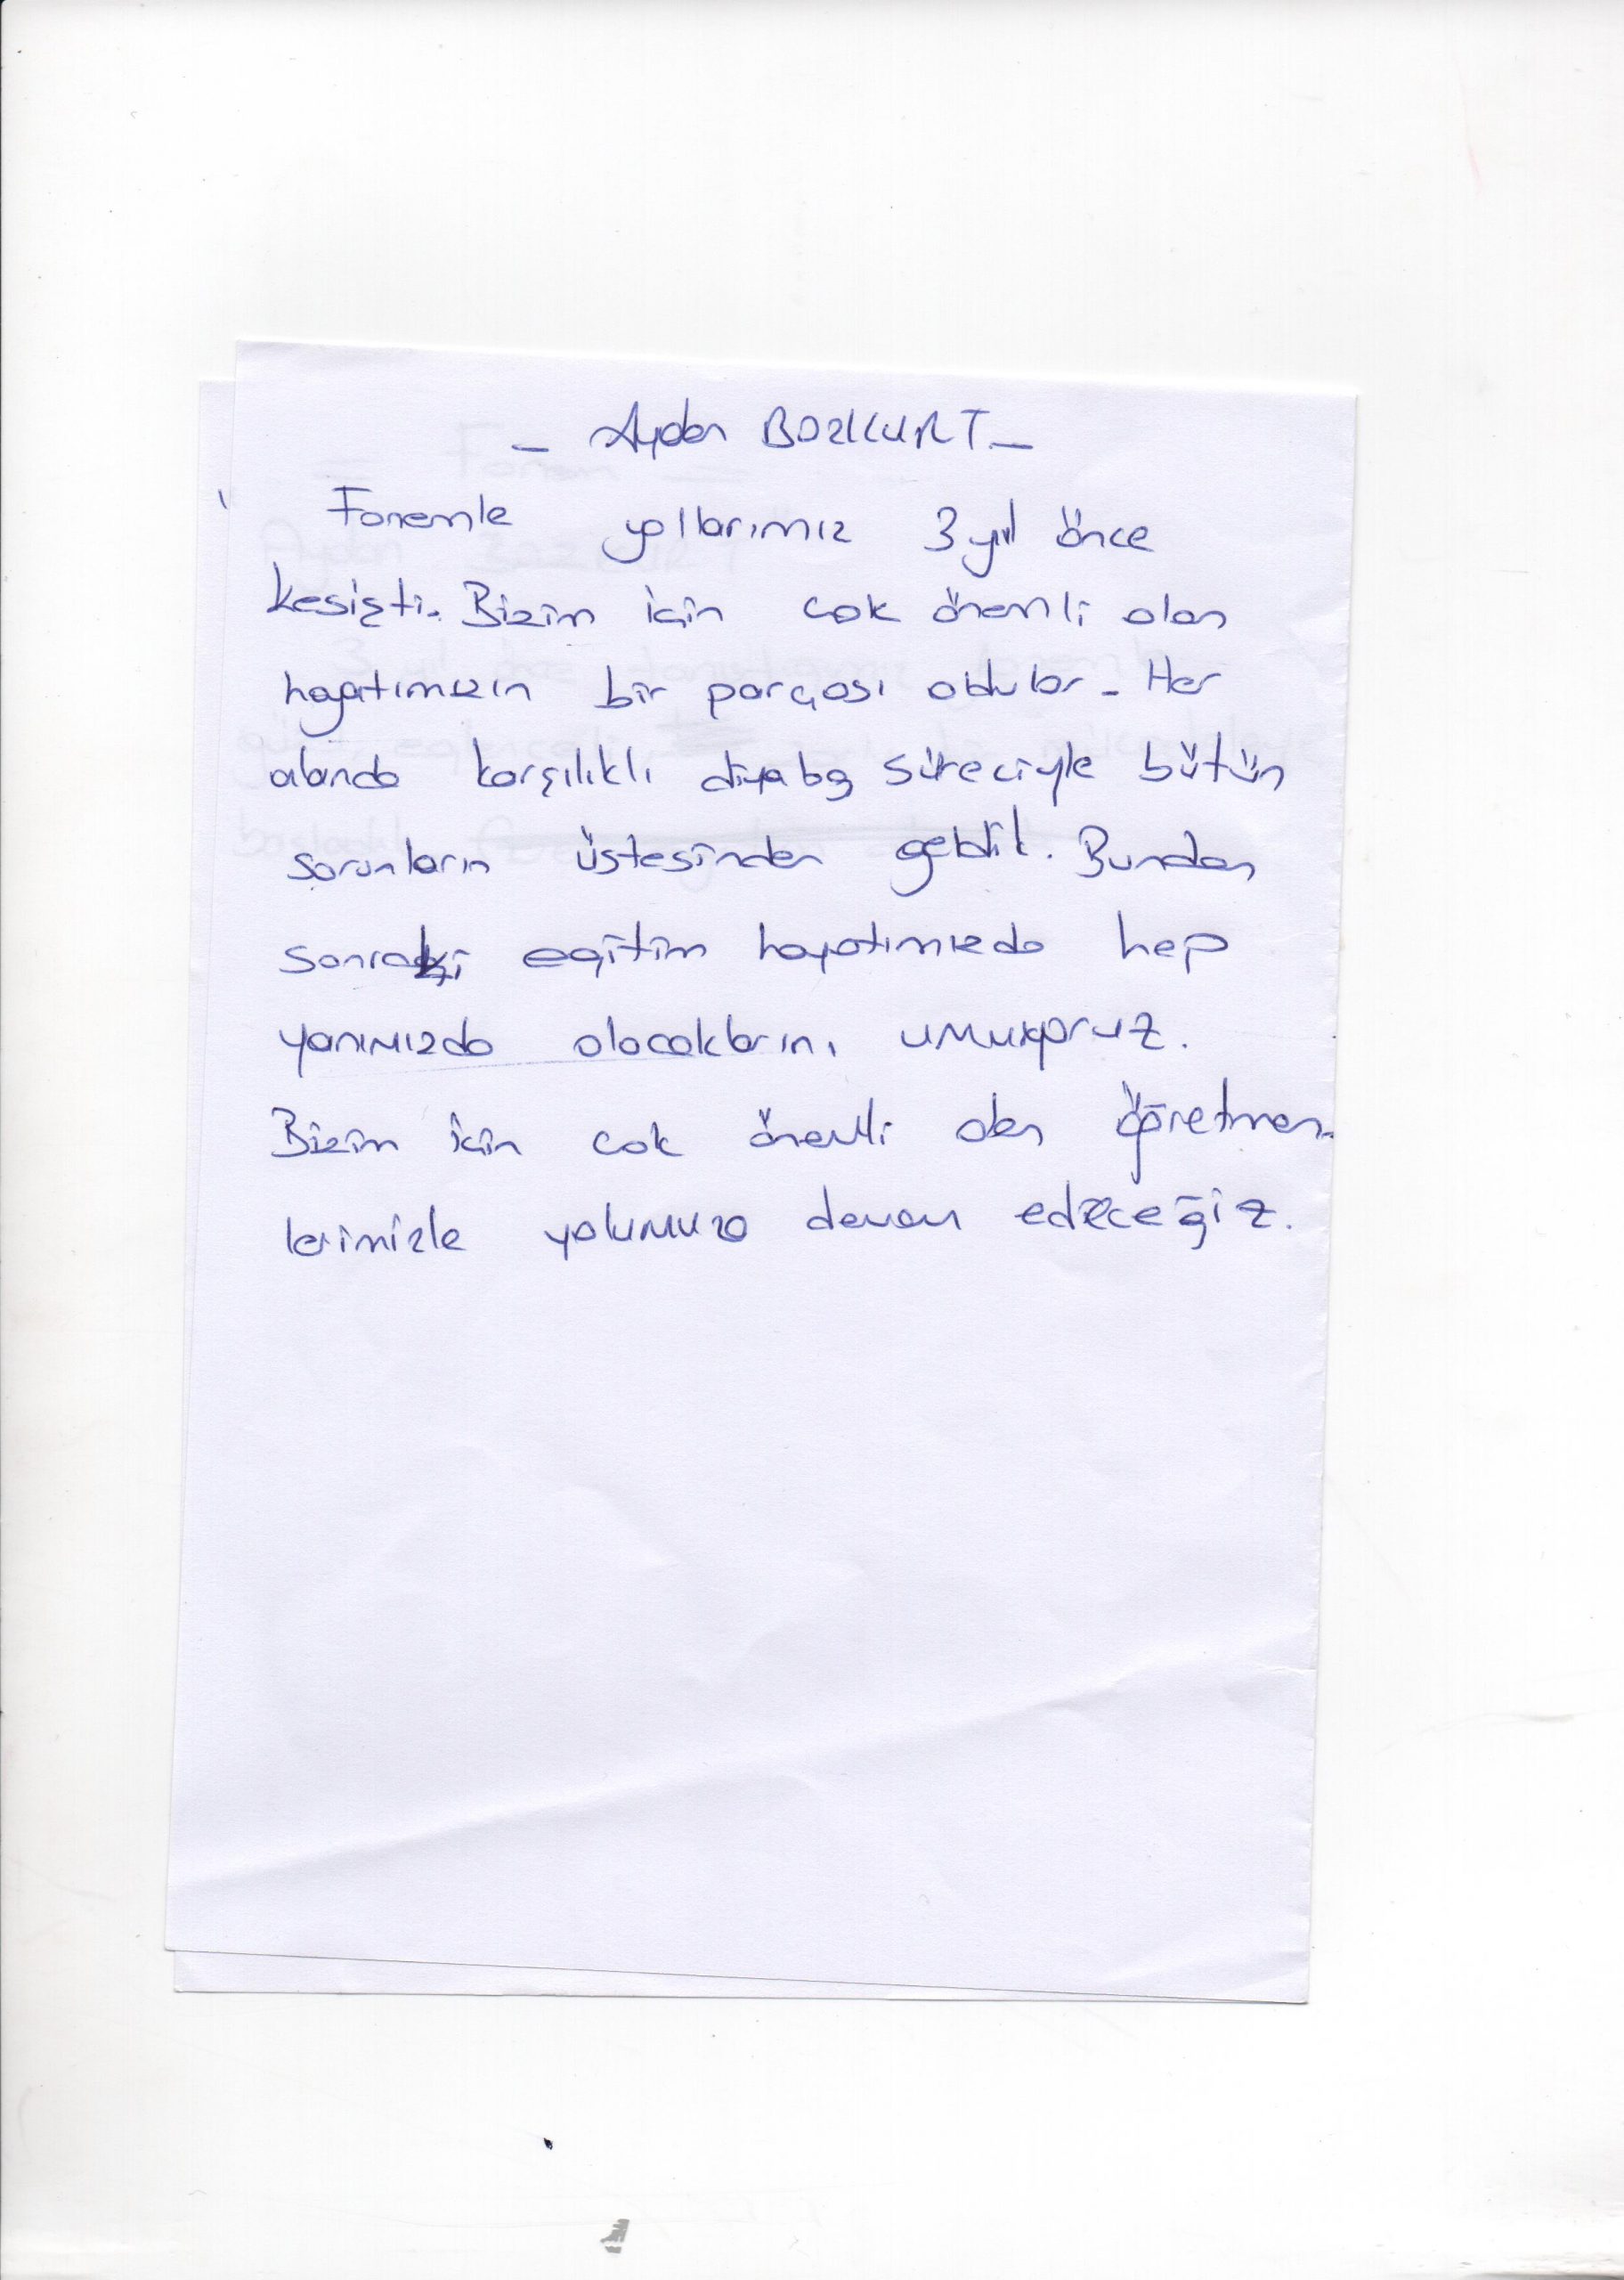 - Aydan BOZKURT -
Fonemle yollarımız 3 yıl önce
kesişti. Bizim için çok önemli olan
hayatımızın bir parçası oldular. Her
alanda karşılıklı diyalog süreciyle bütün
sorunların üstesinden geldik. Bundan
sonraki eğitim hayatımızda hep
yanımızda olacaklarını umuyoruz.
Bizim için çok önemli olan öğretmen-
lerimizle yolumuza devam edeceğiz.